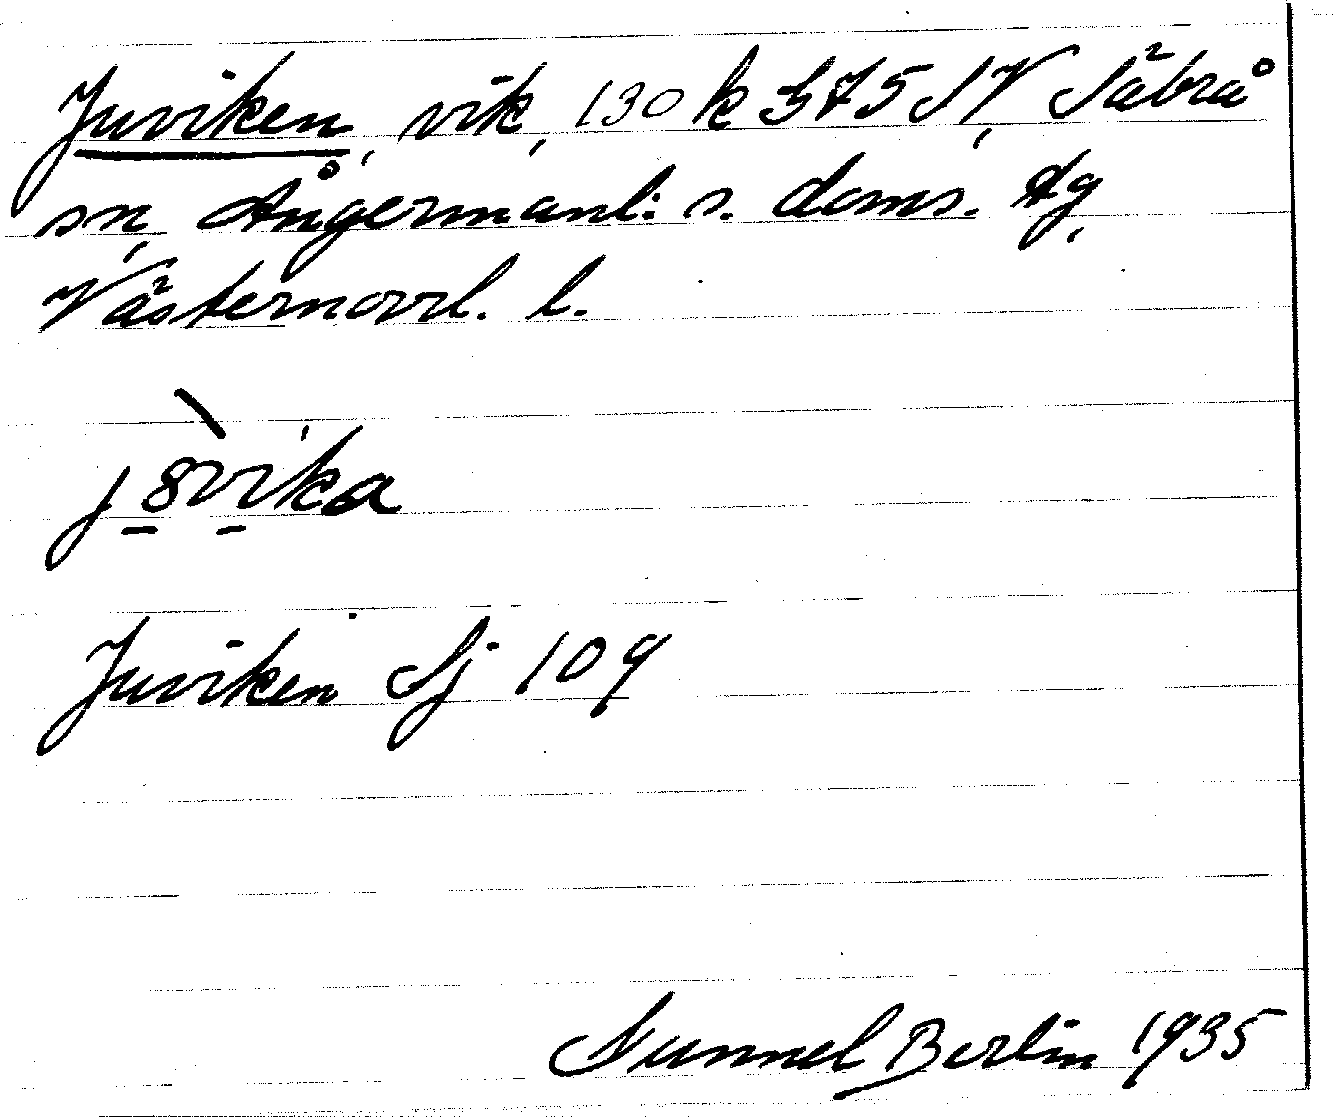 Juviken, vik, 130 k 375 SV, Säbrå
sn, Ångermanl. s. doms. tg,
Västernorrl. l.
j8̀vika
Juviken Sj 109
Gunnel Berlin 1935